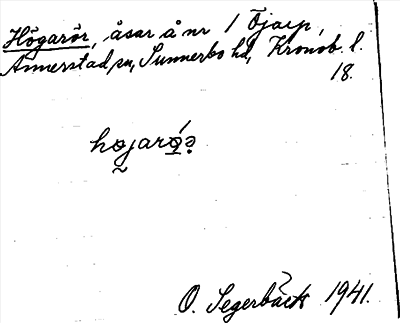 Högarör, åsar å nr 1 Öjarp,
Annerstad sn, Sunnerbo hd, Kronob. l.
18.
hojaro
O. Segerbäck 1941.